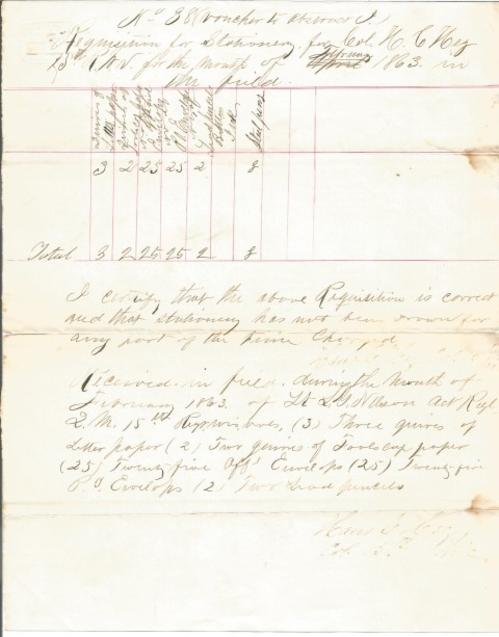 No 38 Voucher to abstract
Requisition for Stationery for Col. H. C. Heg
15th for the month of April February 1863. in
the field.
Quires of Letter paper
Quires of
Bottles Ink
Steel pens
3 2 25 25 2 8
Total 3 2 25 25 2 8
I certify that the above Requisition is correct
and that stationery has not been drawn for
any part of the time Charged
Received in field. during the Month of
February 1863. of Lt Nelson Act Regl
2. M. 15th (3) Three quires of
Letter paper (2) Two quires of Foolscap paper
(25) Twenty five Off' Envelops (25) Twenty five
Envelops (2) Two Lead pencels
Hans C. Heg
Col. 15th